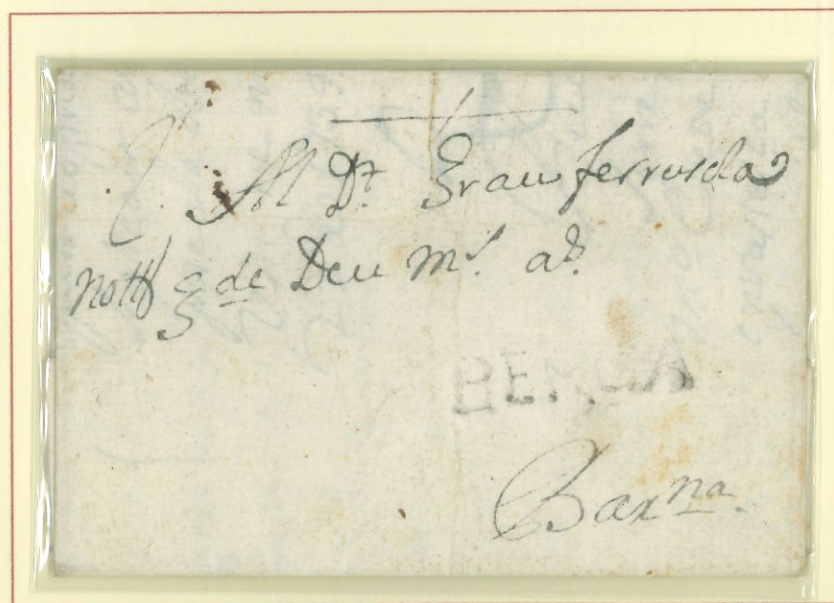 Al Dr. Grau ferrusola
nott q de Deu ms. as.
BERGA
Barna.